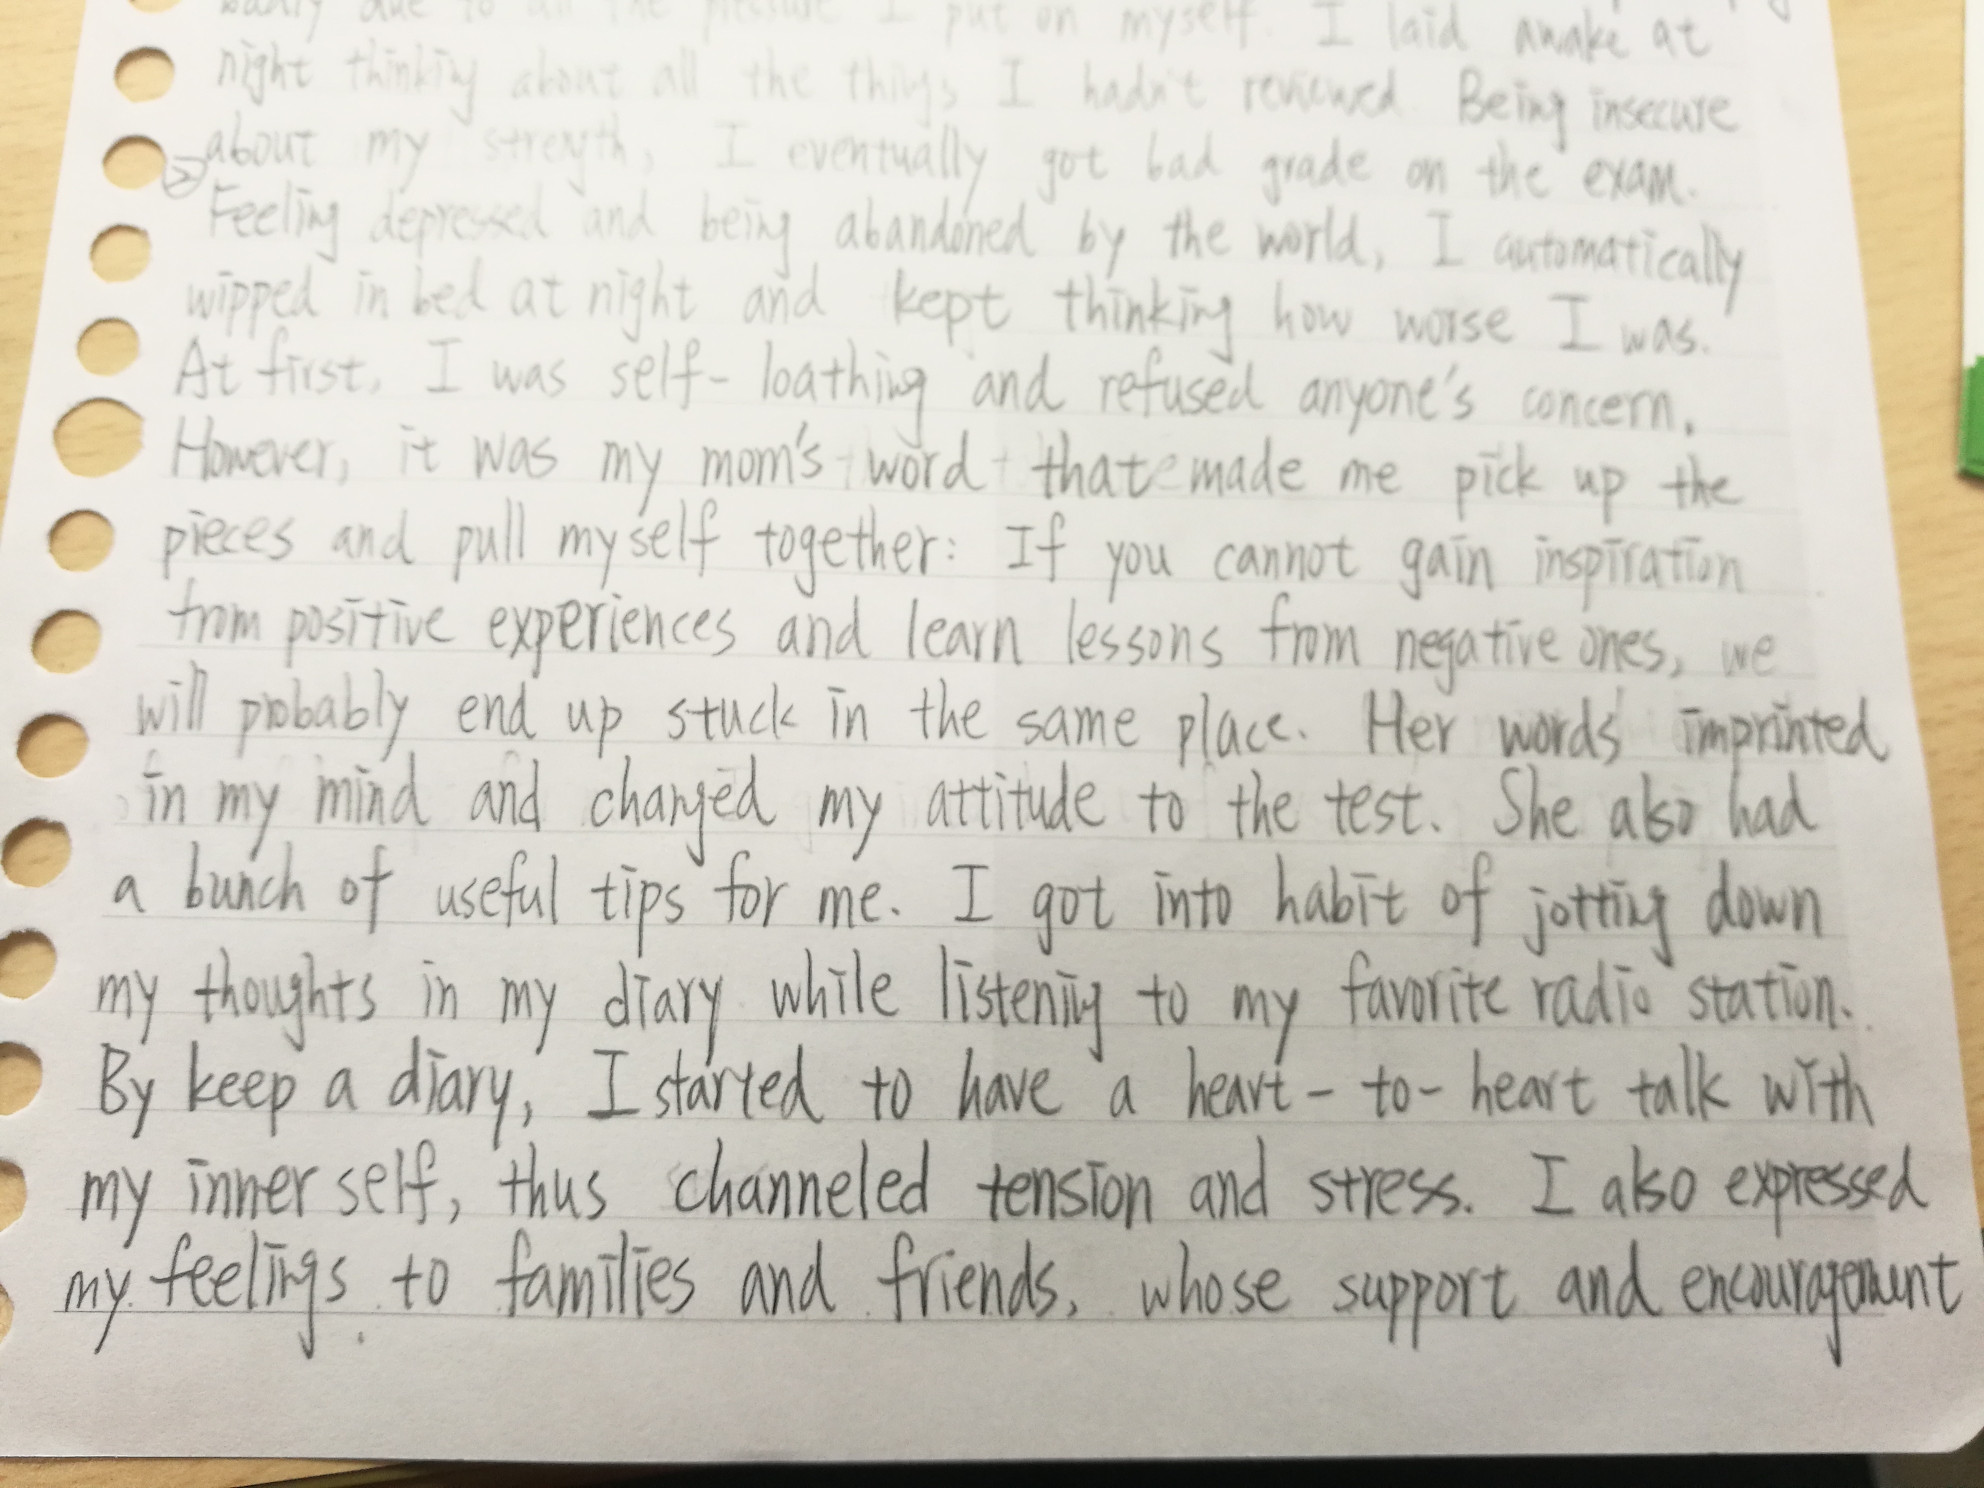 badly due to all the pressure I put on myself. I laid awake at
night thinking about all the things I hadn't reviewed. Being insecure
about my strength, I eventually got bad grade on the exam.
Feeling depressed and being abandoned by the world, I automatically
wipped in bed at night and kept thinking how worse I was.
At first, I was self-loathing and refused anyone's concern.
However, it was my mom's word that made me pick up the
pieces and pull myself together: If you cannot gain inspiration
from positive experiences and learn lessons from negative ones, we
will probably end up stuck in the same place. Her words imprinted
in my mind and changed my attitude to the test. She also had
a bunch of useful tips for me. I got into habit of jotting down
my thoughts in my diary while listening to my favorite radio station.
By keep a diary, I started to have a heart-to-heart talk with
my inner self, thus channeled tension and stress. I also expressed
my feelings to families and friends, whose support and encouragement